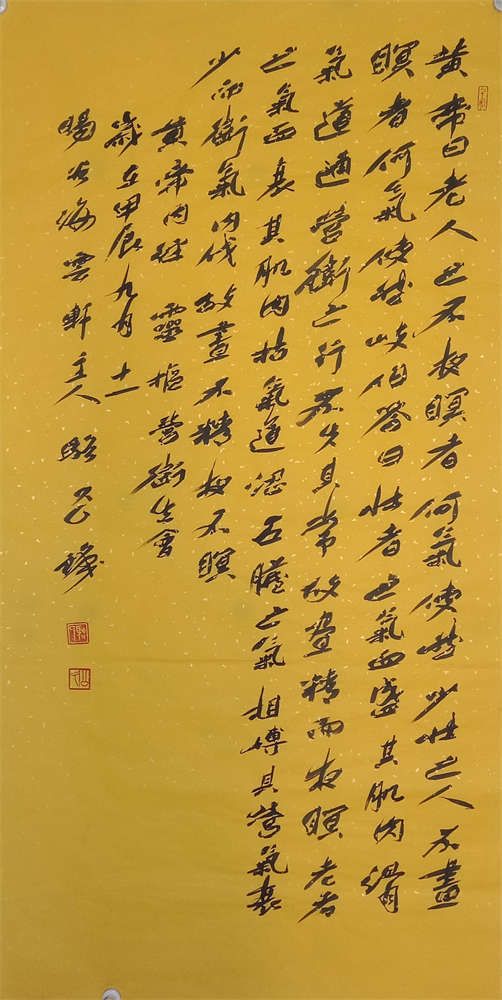 黄帝曰老人之不夜瞑者何氣使然少壯之人不晝
瞑者何氣使然岐伯答曰壯者之氣血盛其肌肉滑
氣道通營衛之行不失其常故晝精而夜瞑老者
之氣血衰其肌肉枯氣道澀五臟之氣相搏其營氣衰
少而衛氣內伐故晝不精夜不瞑
黄帝內經 靈樞營衛生會
歲在甲辰九月十一
海雲軒主人